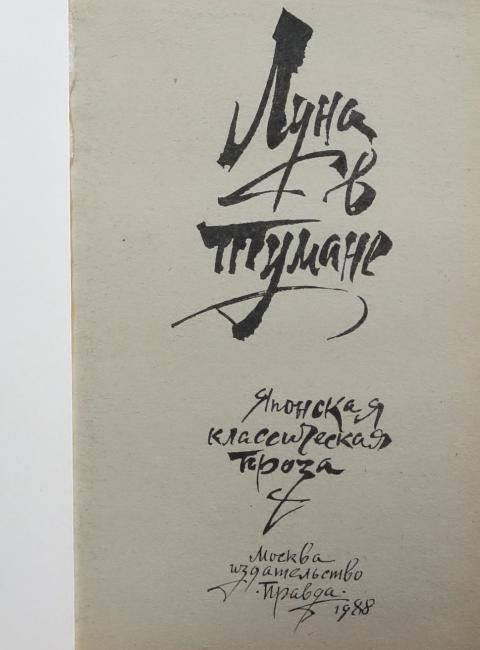 Луна
в
тумане
Японская
классическая
проза
Москва
издательство
·Правда·
1988